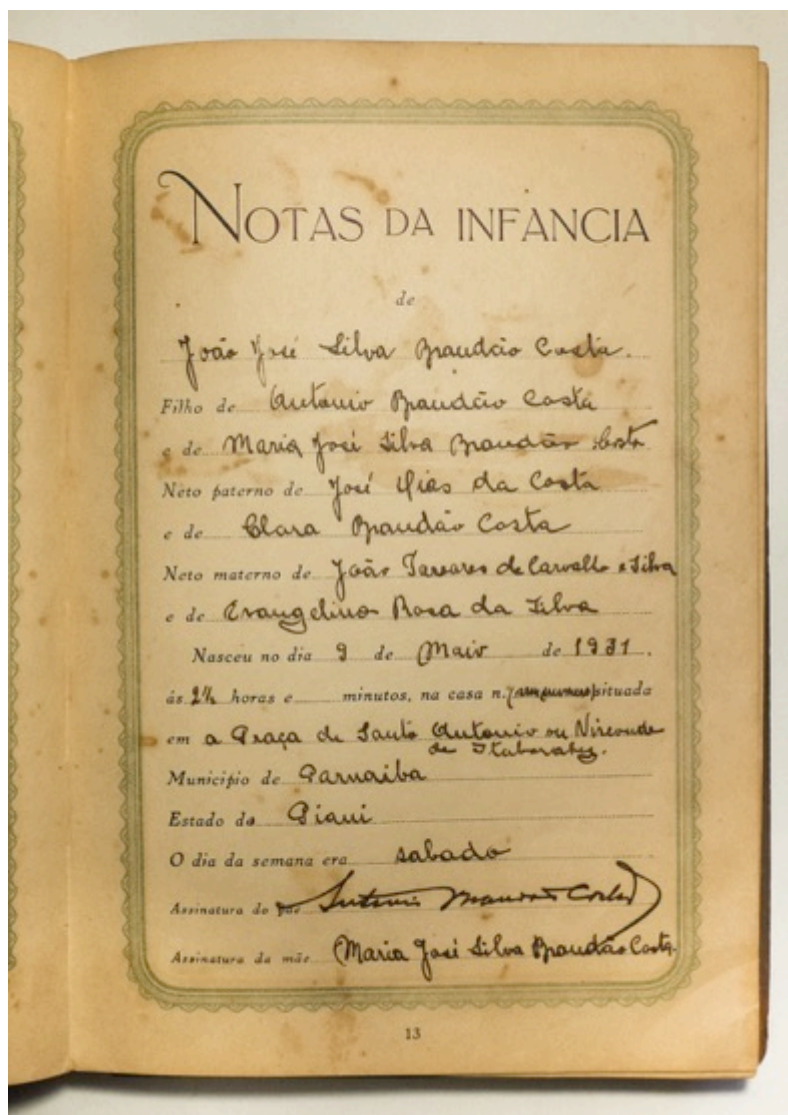 NOTAS DA INFANCIA
de
João José Silva Brandão Costa.
Filho de Antonio Brandão Costa
e de Maria José Silva Brandão Costa
Neto paterno de José Dias da Costa
e de Clara Brandão Costa
Neto materno de João Tavares de Carvalho e Silva
e de Evangelina Rosa da Silva
Nasceu no dia 9 de Maio de 1931,
ás 2½ horas e minutos, na casa n. situada
em a Praça de Santo Antonio ou Visconde
de Itaborahy.
Municipio de Parnaiba
Estado do Piaui
O dia da semana era sabado
Assinatura do pae Antonio Brandão Costa
Assinatura da mãe Maria José Silva Brandão Costa.
13